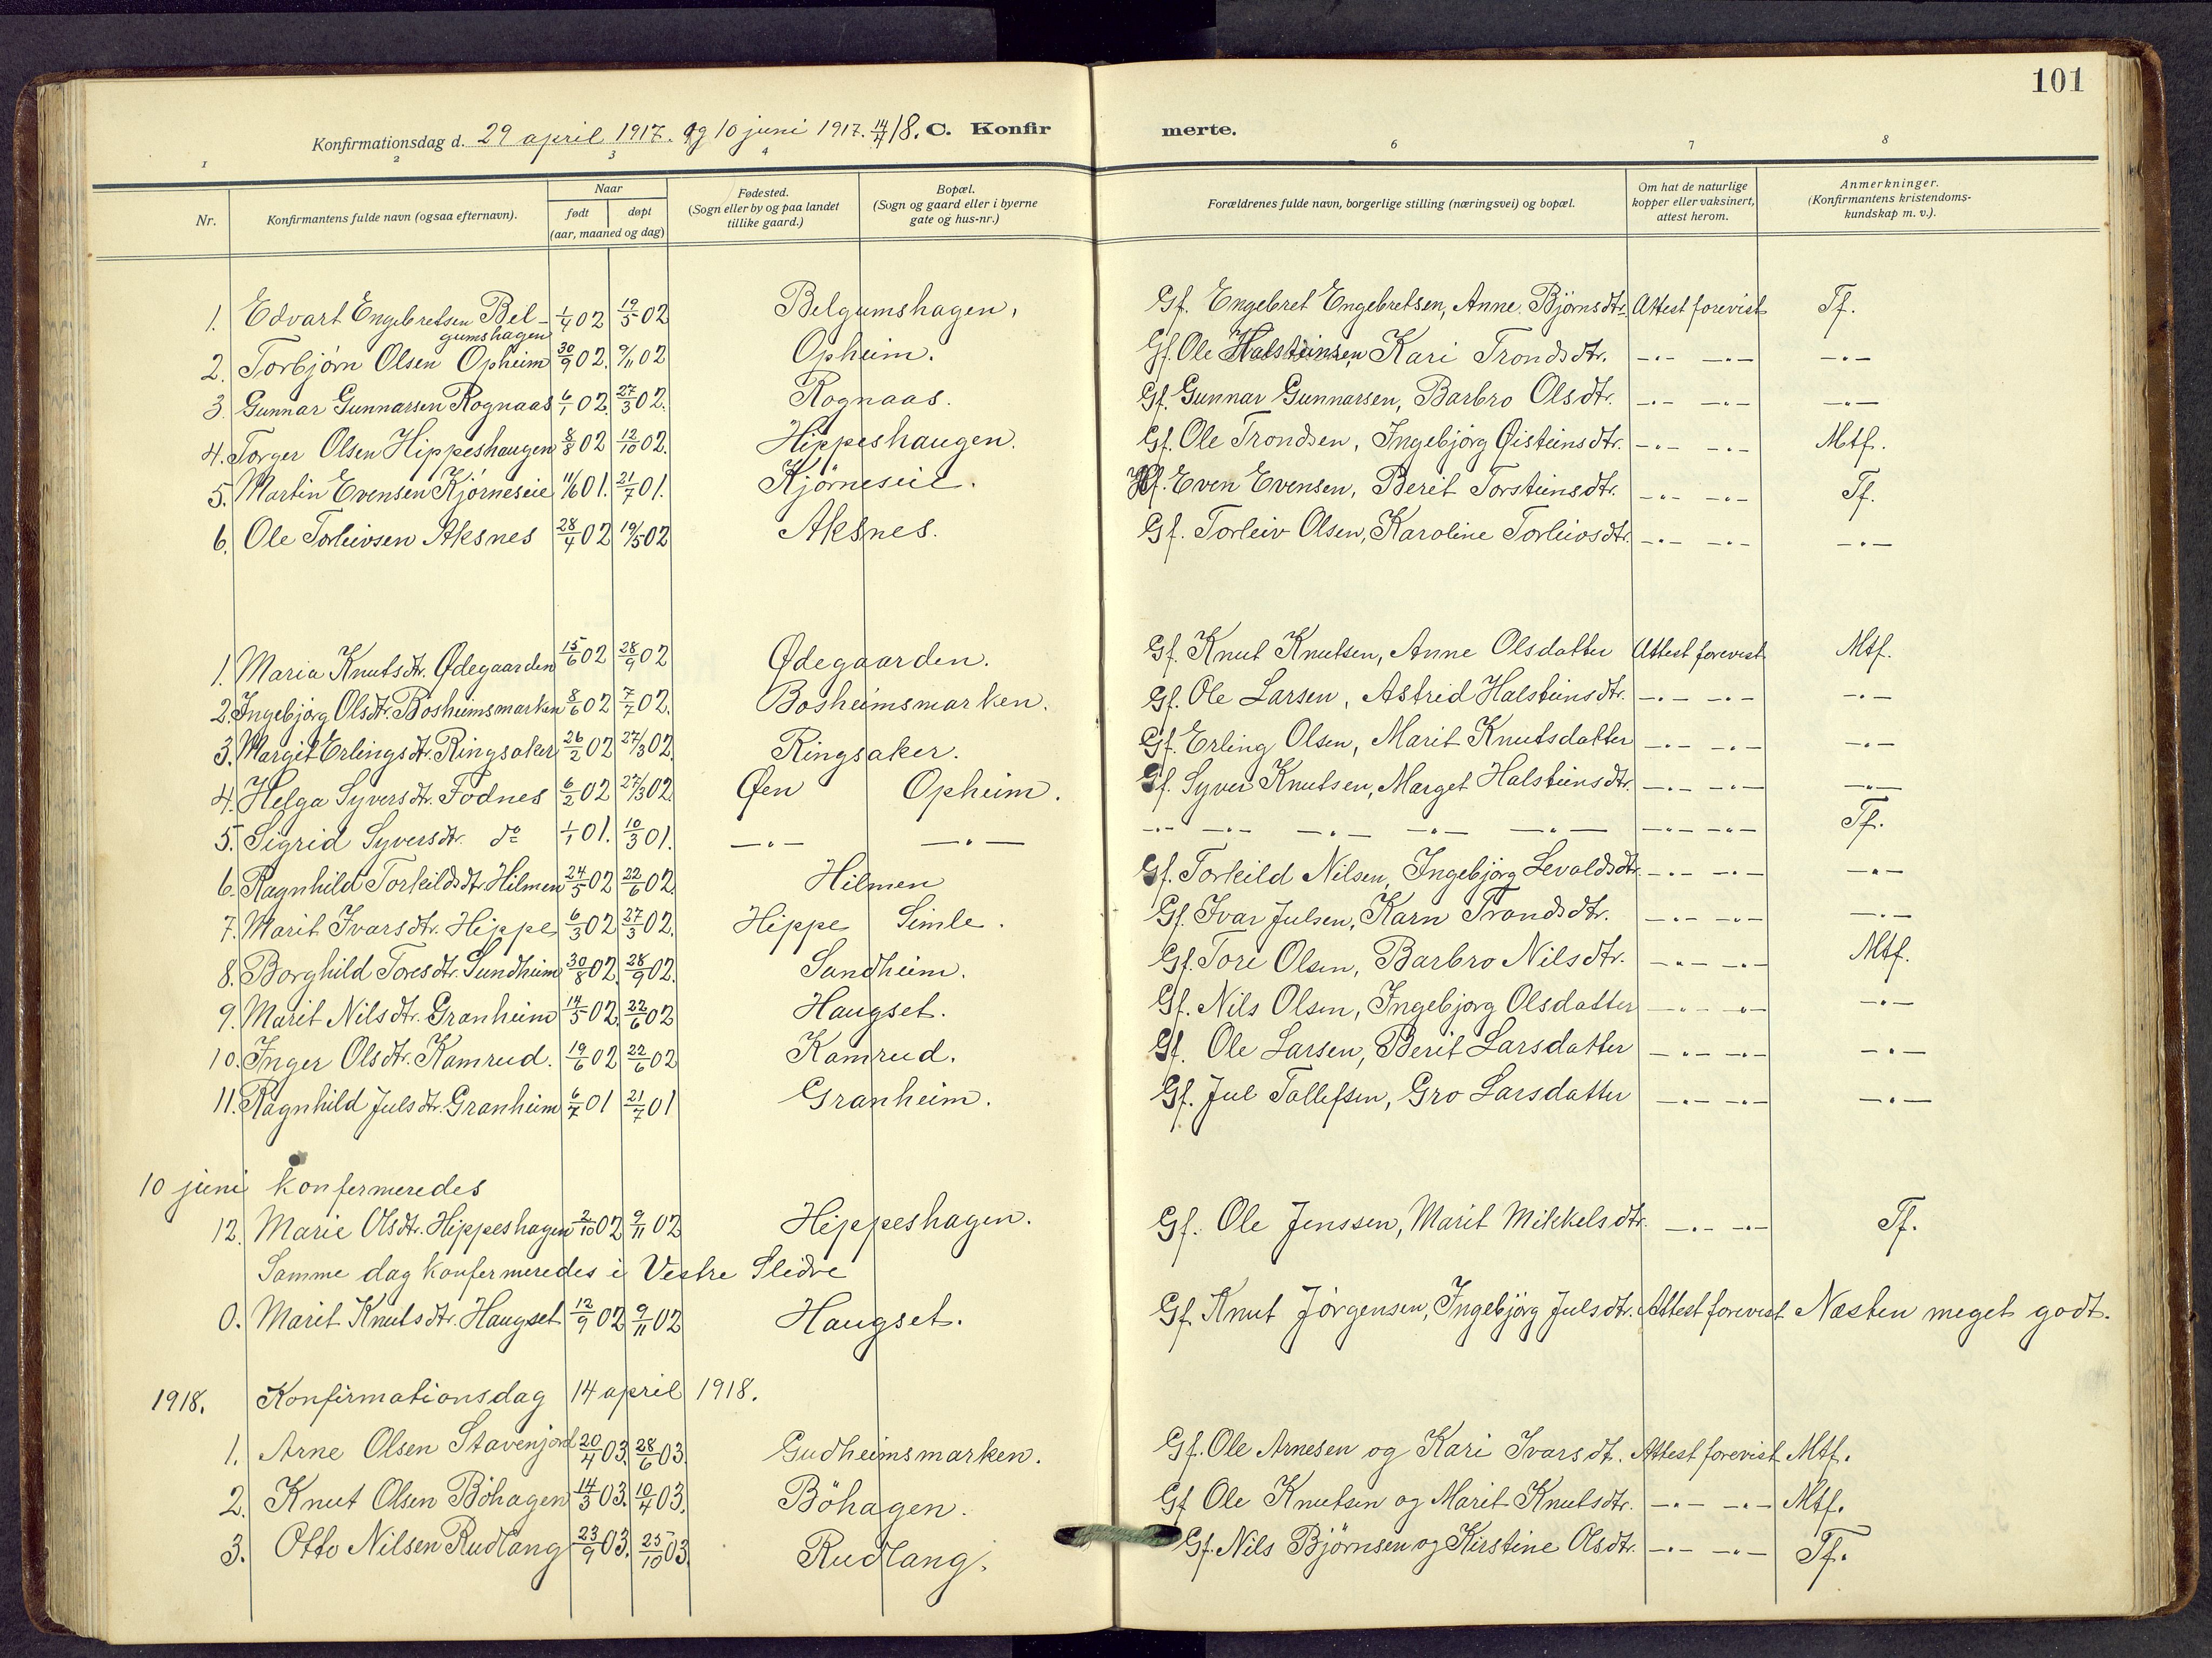 101
Konfirmationsdag d. 29 april 1917. og 10 juni 1917. 14/4 18. C. Konfirmerte.
1 2 3 4 6 7 8
Nr. Konfirmantens fulde navn (ogsaa efternavn). Naar født døpt (aar, maaned og dag) Fødested. (Sogn eller by og paa landet tillike gaard.) Bopæl. (Sogn og gaard eller i byerne gate og hus-nr.) Forældrenes fulde navn, borgerlige stilling (næringsvei) og bopæl. Om hat de naturlige kopper eller vaksinert, attest herom. Anmerkninger. (Konfirmantens kristendoms-kundskap m. v.).
1. Edvart Engebretsen Belgumshagen 1/4 02 19/5 02 Belgumshagen. Gf. Engebret Engebretsen, Anne Bjørnsdtr. Attest forevist Tf.
2. Torbjørn Olsen Opheim 30/9 02. 9/11 02 Opheim. Gf. Ole Halsteinsen, Kari Trondsdtr. -"- -"- -"-
3. Gunnar Gunnarsen Rognaas 6/1 02. 27/3 02. Rognaas. Gf. Gunnar Gunnarsen, Barbro Olsdtr. -"- -"- -"-
4. Torger Olsen Hippeshaugen 8/8 02 12/10 02. Hippeshaugen. Gf. Ole Trondsen, Ingebjørg Øisteinsdtr. -"- -"- Mtf.
5. Martin Evensen Kjørneseie 11/6 01. 21/7 01. Kjørneseie. Gf. Even Evensen, Berit Torsteinsdtr. -"- -"- Tf.
6. Ole Torleivsen Aksnes 28/4 02 19/5 02 Aksnes. Gf. Torleiv Olsen, Karoline Torleivsdtr. -"- -"- -"-
1. Maria Knutsdtr. Ødegaarden 15/6 02 28/9 02 Ødegaarden. Gf. Knut Knutsen, Anne Olsdatter Attest forevist Mtf.
2. Ingebjørg Olsdtr. Bösheimsmarken 8/6 02 7/7 02. Bosheimsmarken. Gf. Ole Larsen, Astrid Halsteinsdtr. -"- -"- -"-
3. Margit Erlingsdtr. Ringsaker 26/2 02 27/3 02. Ringsaker. Gf. Erling Olsen, Marit Knutsdatter -"- -"- -"-
4. Helga Syversdtr. Fodnes 6/2 02 27/3 02. Øen Opheim. Gf. Syver Knutsen, Marget Halsteinsdtr. -"- -"- -"-
5. Sigrid Syversdtr. do 1/1 01. 10/3 01. -"- -"- -"- -"- -"- -"- -"- -"- -"- Tf.
6. Ragnhild Torkildsdtr. Hilmen 24/5 02 22/6 02 Hilmen Gf. Torkild Nilsen, Ingebjørg Levoldsdtr. -"- -"- -"-
7. Marit Ivarsdtr. Hippe 6/3 02 27/3 02. Hippe Simle. Gf. Ivar Julsen, Karn Trondsdtr. -"- -"- -"-
8. Borghild Toresdtr. Sundheim 30/8 02. 28/9 02. Sundheim. Gf. Tore Olsen, Barbro Nilsdtr. -"- -"- Mtf.
9. Marit Nilsdtr. Granheim 14/5 02. 22/6 02 Haugset. Gf. Nils Olsen, Ingebjørg Olsdatter -"- -"- -"-
10. Inger Olsdtr. Kamrud. 19/6 02 22/6 02 Kamrud. Gf. Ole Larsen, Berit Larsdatter -"- -"- -"-
11. Ragnhild Julsdtr. Granheim 6/7 01 21/7 01 Granheim. Gf. Jul Tollefsen, Gro Larsdatter -"- -"- -"-
10 juni konfermeredes
12. Marie Olsdtr. Hippeshagen 2/10 02 9/11 02 Hippeshagen. Gf. Ole Jenssen, Marit Mikkelsdtr. -"- -"- Tf.
Samme dag konfermeredes i Vestre Slidre
0. Marit Knutsdtr. Haugset 12/9 02 9/11 02 Haugset. Gf. Knut Jørgensen, Ingebjørg Julsdtr. Attest forevist Næsten meget godt.
1918. Konfirmationsdag 14 april 1918.
1. Arne Olsen Stavenjord 20/4 03. 28/6 03. Gudheimsmarken. Gf. Ole Arnesen og Kari Ivarsdt. Attest forevist Mtf.
2. Knut Olsen Böhagen 14/3 03. 10/4 03. Böhagen. Gf. Ole Knutsen og Marit Knutsdtr. -"- -"- Mtf.
3. Otto Nilsen Rudlang 23/9 03. 25/10 03. Rudlang. Gf. Nils Bjørnsen og Kirstine Olsdtr. -"- -"- Tf.